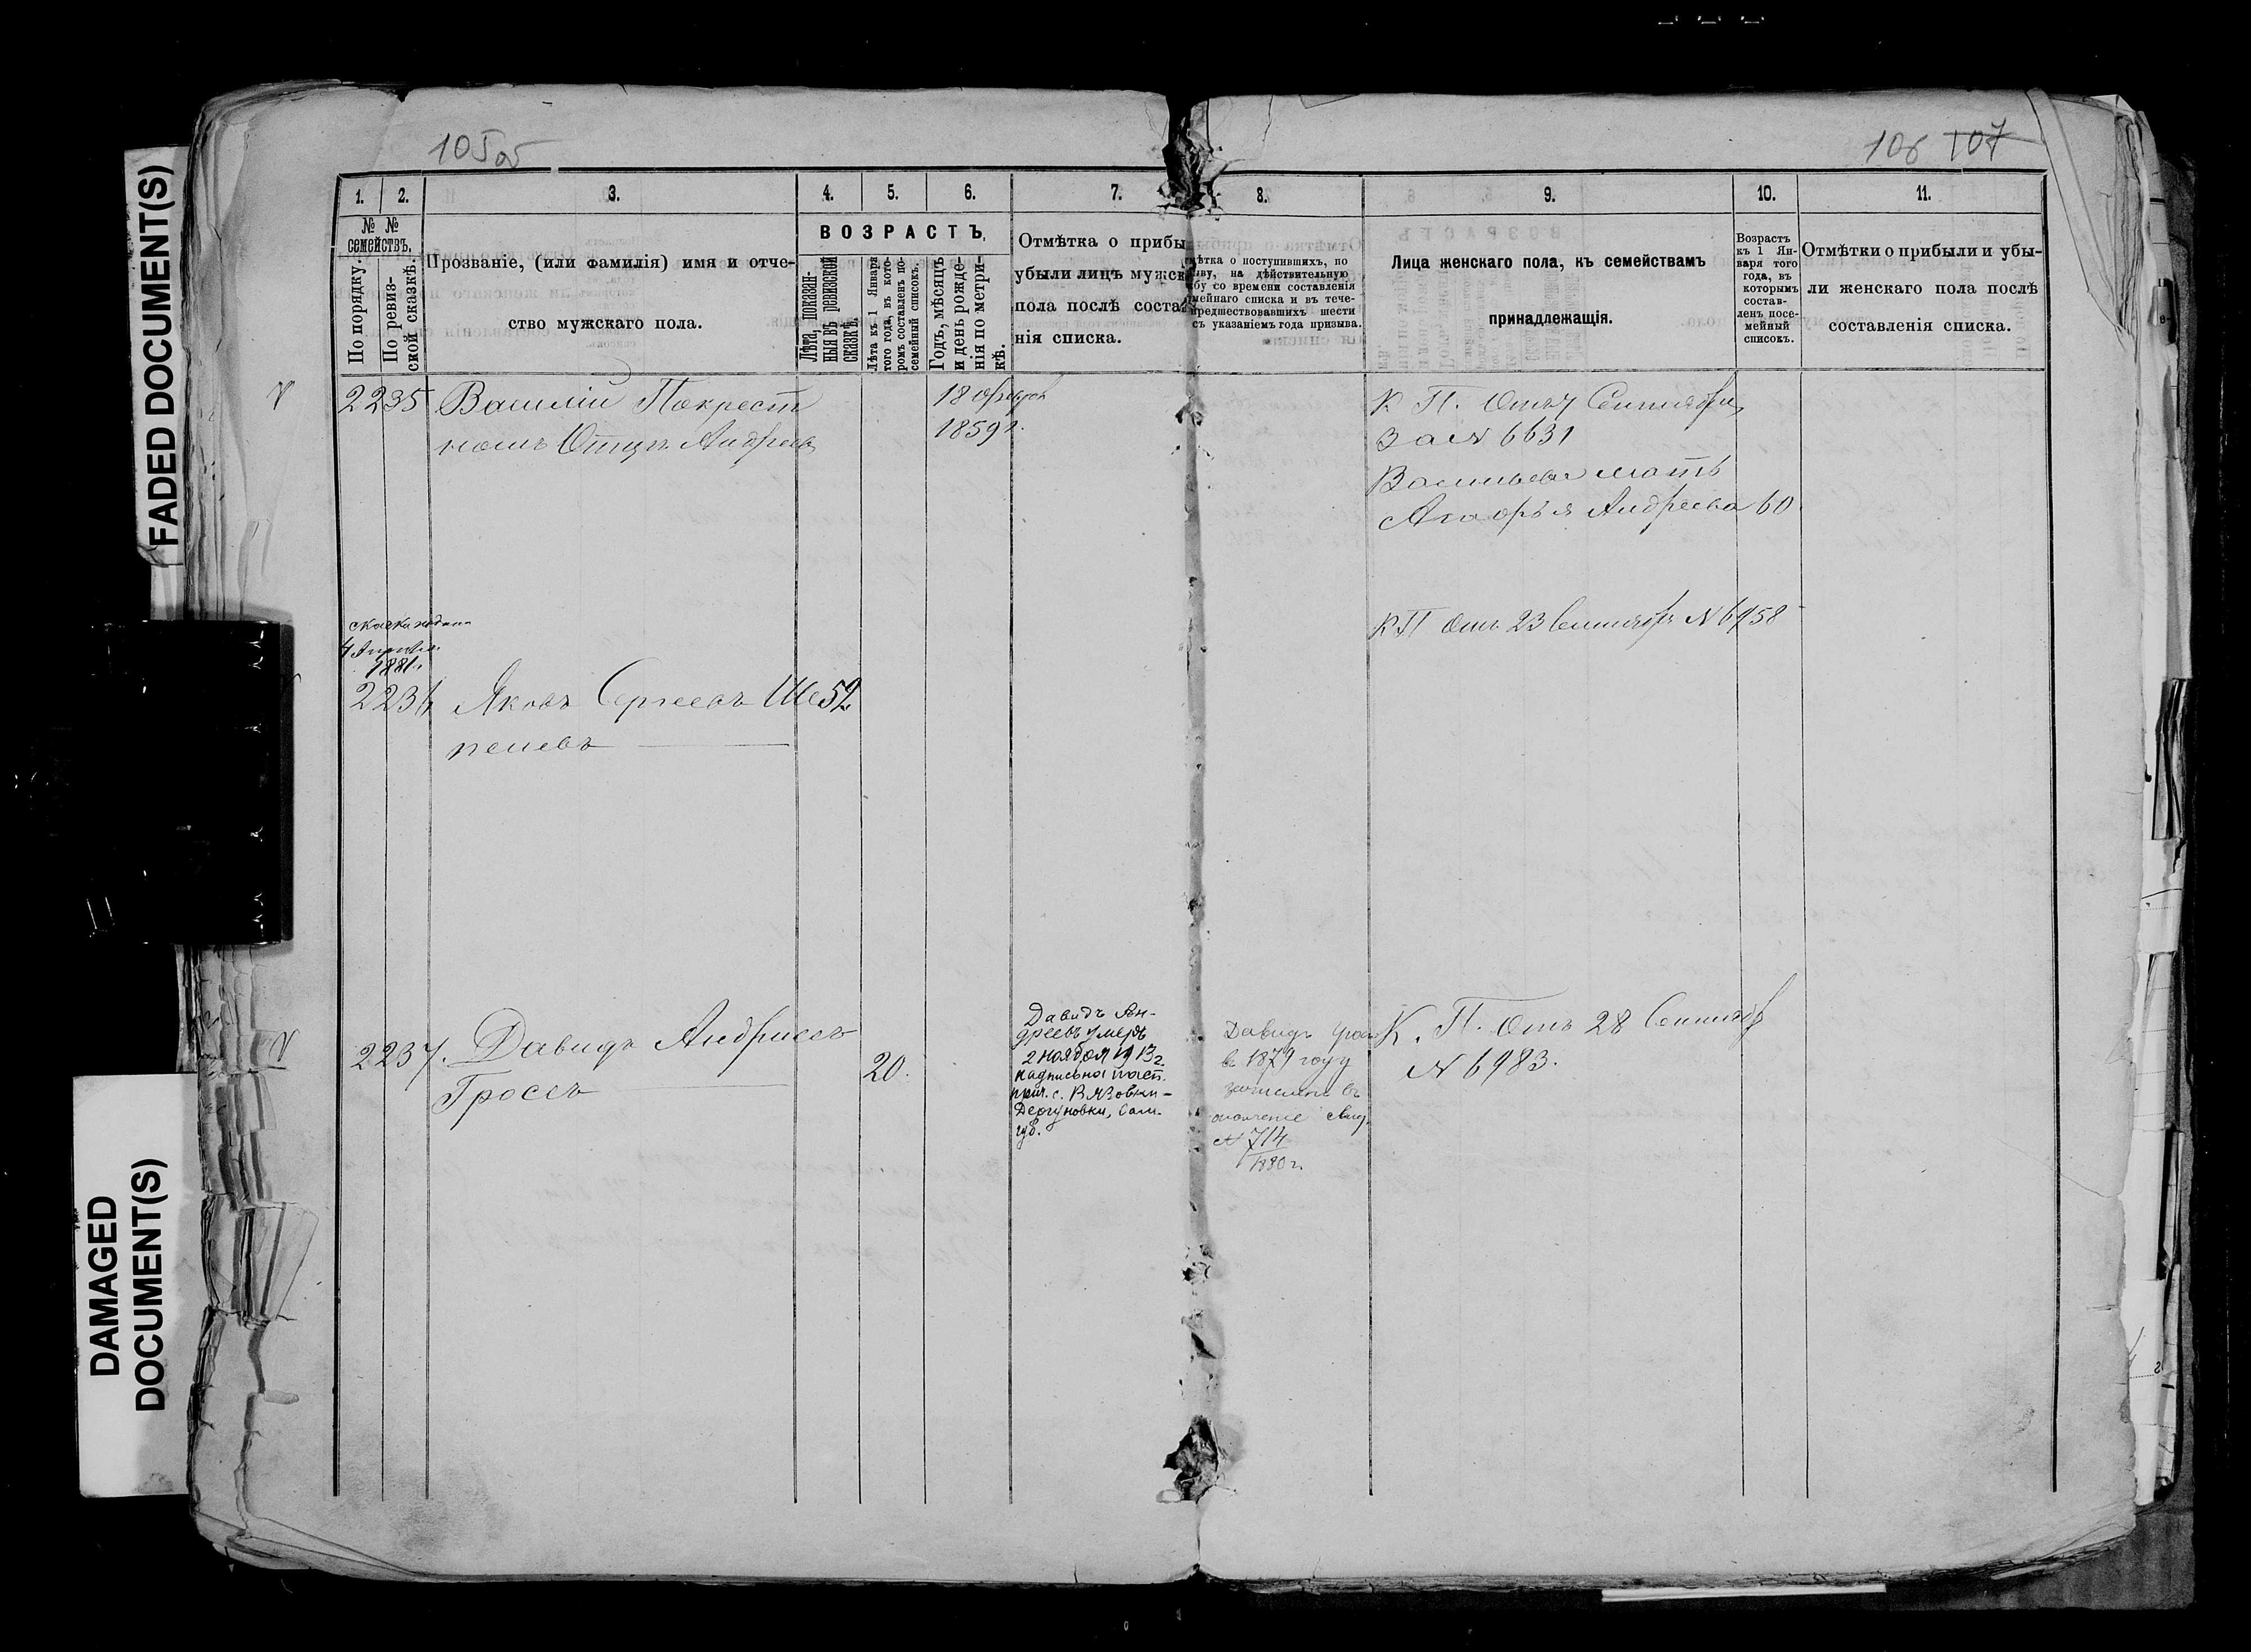 FADED DOCUMENT(S)
DAMAGED
DOCUMENT(S)
105
106 107
1. 2. 3. 4. 5. 6. 7. 8. 9. 10. 11.
№ №
семействъ,
По порядку.
По ревиз-
ской сказкѣ.
Прозваніе, (или фамилія) имя и отче-
ство мужскаго пола.
ВОЗРАСТЪ,
Лѣта, показан-
ныя въ ревизской
сказкѣ.
Лѣта къ 1 Января
того года, въ кото-
ромъ составленъ по-
семейный списокъ.
Годъ, мѣсяцъ
и день рожде-
нія по метри-
кѣ.
Отмѣтка о прибы
убыли лицъ мужск
пола послѣ соста
нія списка.
мѣтка о поступившихъ, по
ыву, на дѣйствительную
бу со времени составленія
мейнаго списка и въ тече-
предшествовавшихъ шести
съ указаніемъ года призыва.
Лица женскаго пола, къ семействамъ
принадлежащія.
Возрастъ
къ 1 Ян-
варя того
года, въ
которымъ
состав-
ленъ посе-
мейный
списокъ.
Отмѣтки о прибыли и убы-
ли женскаго пола послѣ
составленія списка.
V
2235 Василій Покрест
номъ Отцѣ Андреевъ
18
1859 г.
К П. Отъ 7 Сентября
За № 6631
Васильева мать
Андреева 60
сказка подана
4 Апрѣля
1881 г.
2236 Яковъ Сергеевъ Ше 52
пелевъ
К П Отъ 23 Сентябр № 6958
V
2237. Давидъ Андреевъ
Гроссъ
20.
Давидъ Ан-
дреевъ умеръ
2 ноября 1913 г.
надпись на пасп.
прич. с. Вязовки-
Дергуновки, Сам.
губ.
Давидъ Грос
въ 1879 году
зачисленъ въ
ополченіе Свид.
№ 714
1880 г.
К. П. Отъ 28 Сентябр
№ 6983.